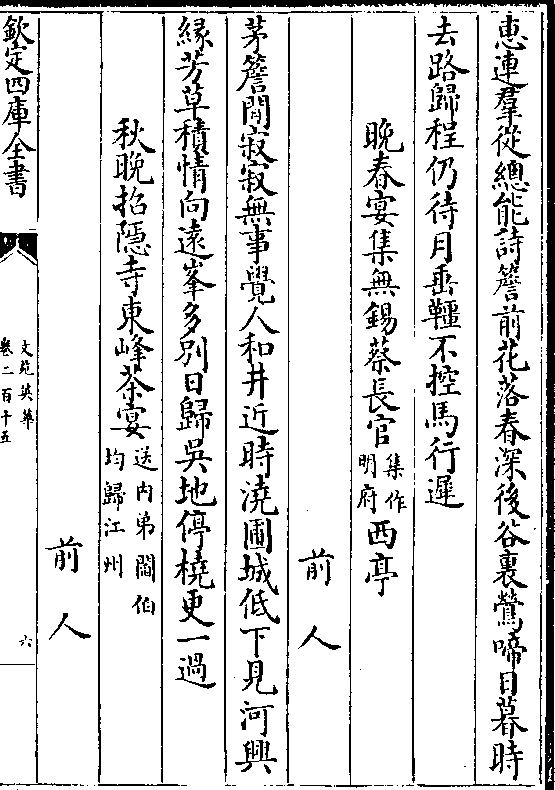 惠連羣從總能詩簷前花落春深後谷裏鶯啼日暮時
去路歸程仍待月垂韁不控馬行遲
晚春宴集無錫蔡長官集作明府西亭
前人
茅簷閒寂寂無事覺人和井近時澆圃城低下見河興
縁芳草積情向遠峯多别日歸吳地停橈更一過
秋晚招隱寺東峰茶宴送内弟閻伯均歸江州
前人
欽定四庫全書
文苑英華
卷二百十五
六